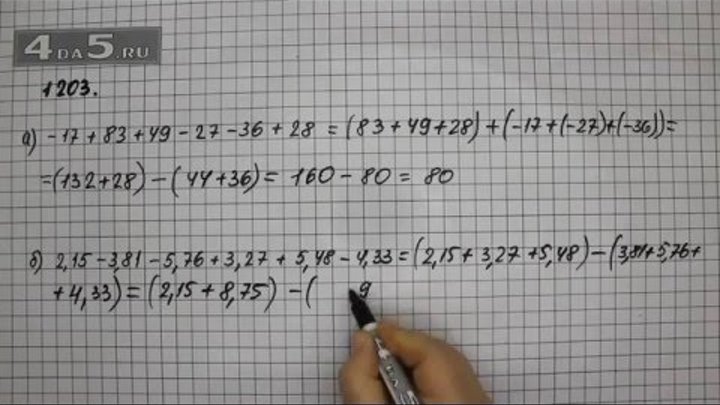 4DA5.RU
1203.
а) -17 + 83 + 49 - 27 - 36 + 28 = (83 + 49 + 28) + (-17 + (-27) + (-36)) =
= (132 + 28) - (44 + 36) = 160 - 80 = 80
б) 2,15 - 3,81 - 5,76 + 3,27 + 5,48 - 4,33 = (2,15 + 3,27 + 5,48) - (3,81 + 5,76 +
+ 4,33) = (2,15 + 8,75) - ( 9